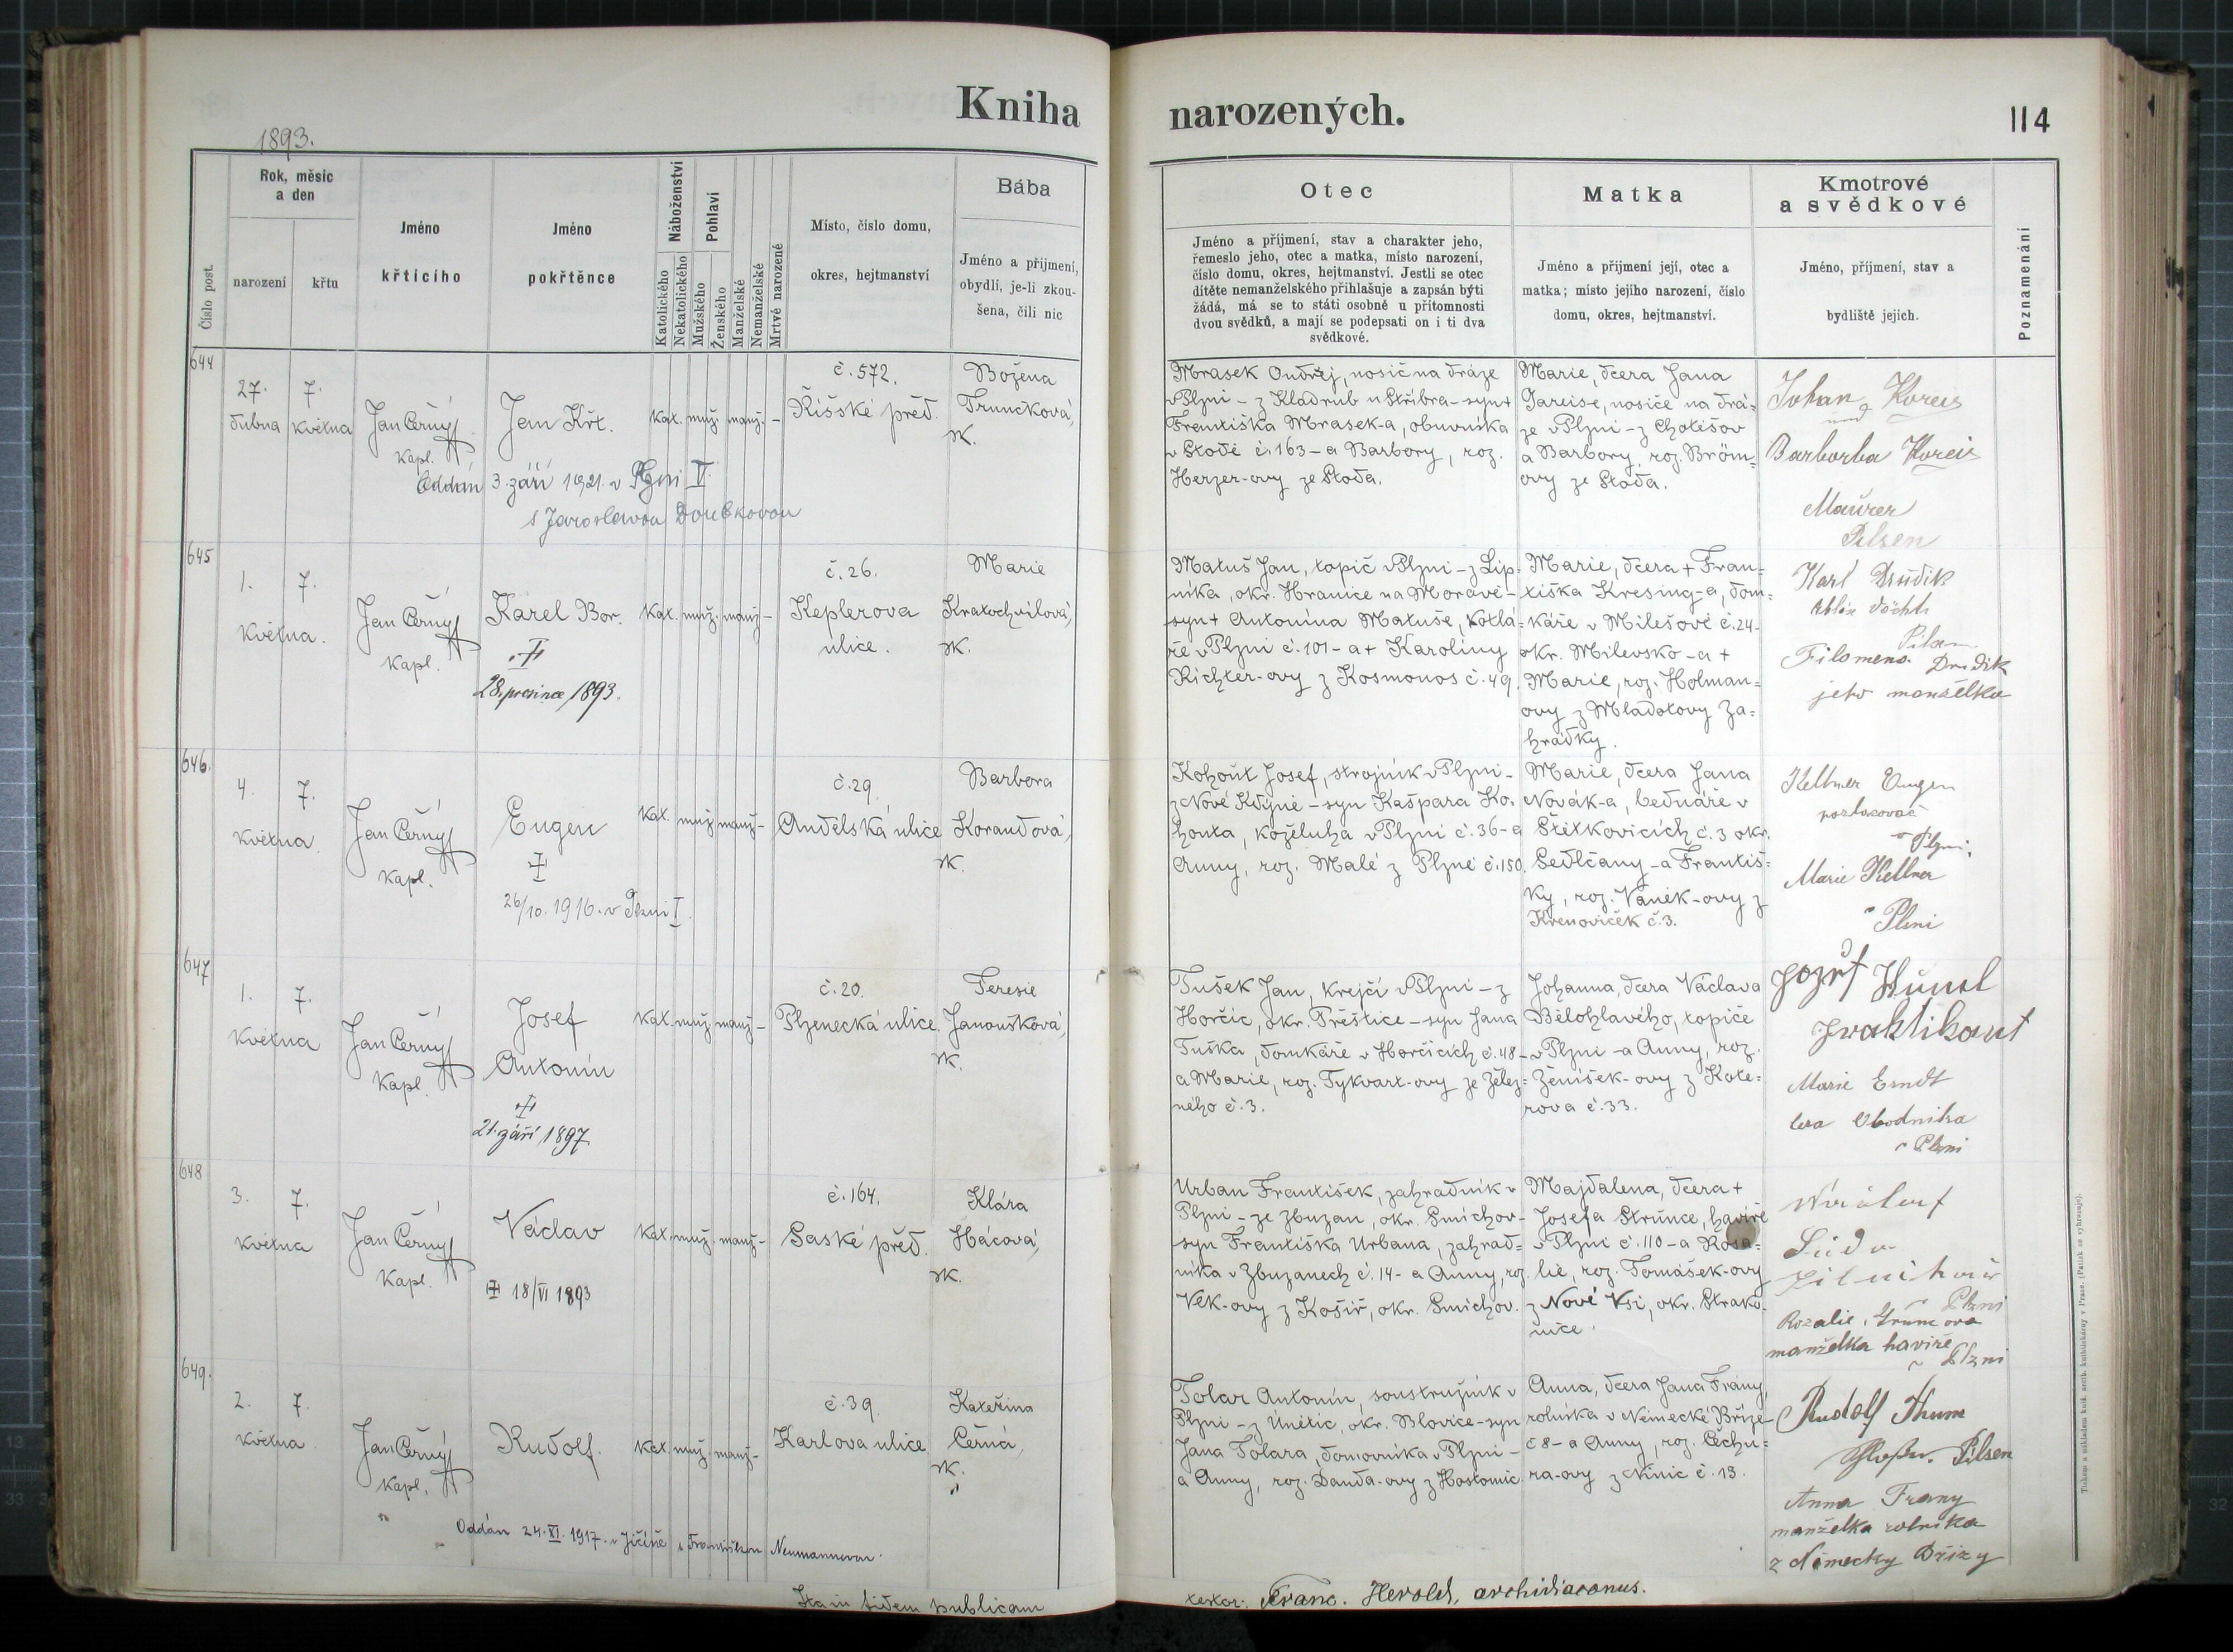 Kniha narozených.
114
1893.
Číslo post.
Rok, měsíc
a den
narození
křtu
Jméno
křtícího
Jméno
pokřtěnce
Náboženství
Katolického
Nekatolického
Pohlaví
Mužského
Ženského
Manželské
Nemanželské
Mrtvě narozené
Místo, číslo domu,
okres, hejtmanství
Bába
Jméno a příjmení,
obydlí, je-li zkou-
šena, čili nic
Otec
Jméno a příjmení, stav a charakter jeho,
řemeslo jeho, otec a matka, místo narození,
číslo domu, okres, hejtmanství. Jestli se otec
dítěte nemanželského přihlašuje a zapsán býti
žádá, má se to státi osobně u přítomnosti
dvou svědků, a mají se podepsati on i ti dva
svědkové.
Matka
Jméno a příjmení její, otec a
matka; místo jejího narození, číslo
domu, okres, hejtmanství.
Kmotrové
a svědkové
Jméno, příjmení, stav a
bydliště jejich.
Poznamenání
644
27.
dubna
7.
května
Jan Černý
kapl.
Jan Křt.
kat. muž. manž. -
Oddán 3. září 1921. v Plzni V.
s Jaroslavou Doubkovou
č. 572.
Říšské před.
Božena
Trunčková,
zk.
Mrasek Ondřej, nosič na dráze
v Plzni - z Kladrub u Stříbra - syn +
Františka Mrasek-a, obuvníka
v Stodě č. 163 - a Barbory, roz.
Herzer-ovy ze Stoda.
Marie, dcera Jana
Pareise, nosiče na drá-
ze v Plzni - z Chotěšov
a Barbory, roz. Bröm-
ovy ze Stoda.
Johan Koreis
und
Barborba Koreis
Maurer
Pilsen
645
1.
května.
7.
Jan Černý
kapl.
Karel Bor.
+
28. prosince 1893.
kat. muž. manž. -
č. 26.
Keplerova
ulice.
Marie
Kratochvilová,
zk.
Matuš Jan, topič v Plzni - z Lip-
níka, okr. Hranice na Moravě -
syn + Antonína Matuše, kotlá-
ře v Plzni č. 101 - a + Karoliny
Richter-ovy z Kosmonos č. 49.
Marie, dcera + Fran-
tiška Kresing-a, dom-
káře v Milešově č. 24 -
okr. Milevsko - a +
Marie, roz. Holman-
ovy z Mladotovy Za-
hrádky.
Karl Drudik
Pilsen
Filomena Drudik
jeho manželka
646.
4.
května.
7.
Jan Černý
kapl.
Eugen
+
26/10. 1916. v Plzni I.
kat. muž. manž. -
č. 29.
Andělská ulice
Barbora
Korandová,
zk.
Kohout Josef, strojník v Plzni -
z Nové Kdýně - syn Kašpara Ko-
houta, koželuha v Plzni č. 36 - a
Anny, roz. Malé z Plzně č. 150.
Marie, dcera Jana
Novák-a, bednáře v
Štětkovicích č. 3 okr.
Sedlčany - a Františ-
ky, roz. Vaněk-ovy z
Křenoviček č. 3.
Kellner Eugen
pozlacovač
v Plzni.
Marie Kellner
v Plzni
647
1.
května
7.
Jan Černý
kapl.
Josef
Antonín
+
21. září 1897.
kat. muž. manž. -
č. 20.
Plzenecká ulice.
Teresie
Janoušková,
zk.
Tušek Jan, krejčí v Plzni - z
Horčic, okr. Přeštice - syn Jana
Tuška, domkáře v Horčicích č. 48 -
a Marie, roz. Tykvart-ovy ze Želez-
ného č. 3.
Johanna, dcera Václava
Bělohlavého, topiče
v Plzni - a Anny, roz.
Ženíšek-ovy z Kote-
rova č. 33.
praktikant
Marie
v Plzni
648
3.
května
7.
Jan Černý
kapl.
Václav
+ 18/VI 1893
kat. muž. manž. -
č. 164.
Saské před.
Klára
Hácová,
zk.
Urban František, zahradník v
Plzni - ze Zbuzan, okr. Smíchov -
syn Františka Urbana, zahrad-
níka v Zbuzanech č. 14 - a Anny, roz.
Vlk-ovy z Košíř, okr. Smíchov.
Majdalena, dcera +
Josefa Strunce, havíře
v Plzni č. 110 - a Rosa-
lie, roz. Tomášek-ovy
z Nové Vsi, okr. Strako-
nice.
v Plzni
Rozalie Strunc ova
manželka havíře
v Plzni
649.
2.
května
7.
Jan Černý
kapl.
Rudolf.
kat. muž. manž. -
Oddán 24. XI. 1917. v Jičíně s Františkou Neumannovou.
č. 39.
Karlova ulice
Kateřina
Černá,
zk.
Tolar Antonín, soustružník v
Plzni - z Únětic, okr. Blovice - syn
Jana Tolara, domovníka v Plzni -
a Anny, roz. Danda-ovy z Hostomic.
Anna, dcera Jana Frany,
rolníka v Německé Bříze
č 8 - a Anny, roz. Čechu-
ra-ovy z Knic č. 13.
Rudolf Thum
Pilsen
Anna Frany
manželka rolníka
z Německy Břízy
Ita in fidem publicam
testor: Franc. Herold, archidiaconus.